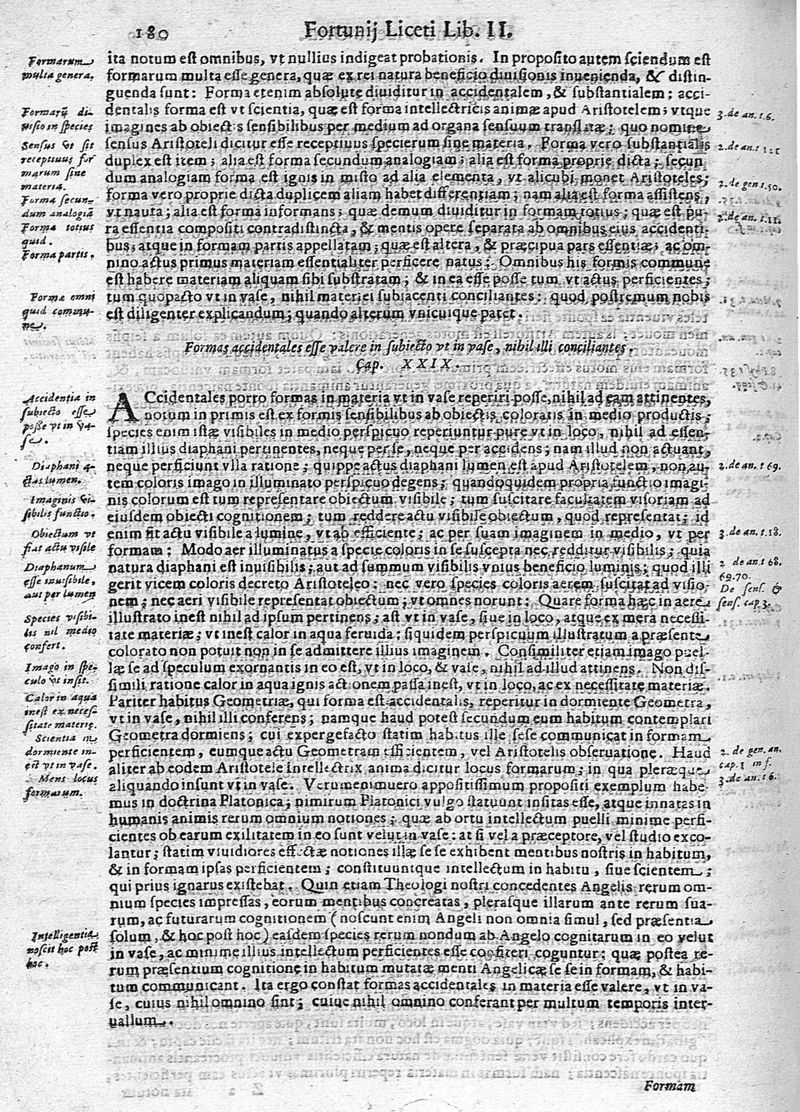 180
Fortunij Liceti Lib. II.
ita notum est omnibus, vt nullius indigeat probationis. In proposito autem sciendum est
formarum multa esse genera, quæ ex rei natura beneficio diuisionis inuenienda, & distin-
guenda sunt: Forma etenim absolute diuiditur in accidentalem, & substantialem; acci-
dentalis forma est vt scientia, quæ est forma intellectricis animæ apud Aristotelem; vtque
imagines ab obiectis sensibilibus per medium ad organa sensuum translatæ; quo nomine
sensus Aristoteli dicitur esse receptiuus specierum sine materia. Forma vero substantialis
duplex est item; alia est forma secundum analogiam; alia est forma proprie dicta; secun
dum analogiam forma est ignis in misto ad alia elementa, vt alicubi monet Aristoteles;
forma vero proprie dicta duplicem aliam habet differentiam; nam alia est forma assistens,
vt nauta; alia est forma informans; quæ demum diuiditur in formam totius; quæ est pu
ra essentia compositi contradistincta, & mentis opere separata ab omnibus eius accidenti
bus; atque in formam partis appellatam; quæ est altera, & præcipua pars essentiæ; ac om-
nino actus primus materiam essentialiter perficere natus: Omnibus his formis commune
est habere materiam aliquam sibi substratam; & in ea esse posse tum vt actus perficientes;
tum quopacto vt in vase, nihil materiei subiacenti conciliantes: quod, postremum nobis
est diligenter explicandum; quando alterum vnicuique patet.
Formarum
multa genera.
Formarũ di-
uisio in species
Sensus vt sit
receptiuus for
marum sine
materia.
Forma secun-
dum analogiã
Forma totius
quid.
Forma partis.
Formæ omni
quid commu-
ne.
3. de an. t. 6.
2. de an. t.
2. de gen t. 50.
2. de an. t. 11.
Formas accidentales esse valere in subiecto vt in vase, nihil illi conciliantes.
Cap. XXIX.
ACcidentales porro formas in materia vt in vase reperiri posse, nihil ad eam attinentes,
notum in primis est ex formis sensibilibus ab obiectis coloratis in medio productis;
species enim istæ visibiles in medio perspicuo reperiuntur pure vt in loco, nihil ad essen-
tiam illius diaphani pertinentes, neque per se, neque per accidens; nam illud non actuant,
neque perficiunt vlla ratione; quippe actus diaphani lumen est apud Aristotelem, non au-
tem coloris imago in illuminato perspicuo degens; quandoquidem propria functio imagi
nis colorum est tum representare obiectum visibile; tum suscitare facultatem visoriam ad
eiusdem obiecti cognitionem; tum reddere actu visibile obiectum, quod representat; id
enim fit actu visibile a lumine, vt ab efficiente; ac per suam imaginem in medio, vt per
formam: Modo aer illuminatus a specie coloris in se suscepta nec redditur visibilis; quia
natura diaphani est inuisibilis; aut ad summum visibilis vnius beneficio luminis; quod illi
gerit vicem coloris decreto Aristoteleo: nec vero species coloris aerem suscitat ad visio
nem; nec aeri visibile representat obiectum; vt omnes norunt: Quare forma hæc in aere
illustrato inest nihil ad ipsum pertinens; ast vt in vase, siue in loco, atque ex mera necessi-
tate materiæ; vt inest calor in aqua feruida: siquidem perspicuum illustratum a præsente
colorato non potuit non in se admittere illius imaginem. Consimiliter etiam imago puel-
læ se ad speculum exornantis in eo est, vt in loco, & vase, nihil ad illud attinens. Non dis-
simili ratione calor in aqua ignis actionem passa inest, vt in loco, ac ex necessitate materiæ.
Pariter habitus Geometriæ, qui forma est accidentalis, reperitur in dormiente Geometra,
vt in vase, nihil illi conferens; namque haud potest secundum eum habitum contemplari
Geometra dormiens; cui expergefacto statim habitus ille sese communicat in formam
perficientem, eumque actu Geometram efficientem, vel Aristotelis obseruatione. Haud
aliter ab eodem Aristotele Intellectrix anima dicitur locus formarum; in qua pleræque
aliquando insunt vt in vase. Verumenimuero appositissimum propositi exemplum habe-
mus in doctrina Platonica; nimirum Platonici vulgo statuunt insitas esse, atque innatas in
humanis animis rerum omnium notiones; quæ ab ortu intellectum puelli minime perfi-
cientes ob earum exilitatem in eo sunt velut in vase: at si vel a præceptore, vel studio exco-
lantur; statim viuidiores effectæ notiones illæ sese exhibent mentibus nostris in habitum,
& in formam ipsas perficientem; constituuntque intellectum in habitu, siue scientem;
qui prius ignarus existebat. Quin etiam Theologi nostri concedentes Angelis rerum om-
nium species impressas, eorum mentibus concreatas, plerasque illarum ante rerum sua-
rum, ac futurarum cognitionem (noscunt enim Angeli non omnia simul, sed præsentia
solum, & hoc post hoc) easdem species rerum nondum ab Angelo cognitarum in eo velut
in vase, ac minime illius intellectum perficientes esse confiteri coguntur; quæ postea re-
rum præsentium cognitione in habitum mutatæ menti Angelicæ se se in formam, & habi-
tum communicant. Ita ergo constat formas accidentales in materia esse valere, vt in va-
se, cuius nihil omnino sint; cuique nihil omnino conferant per multum temporis inter-
uallum.
Accidentia in
subiecto esse
posse vt in va-
se.
Diaphani a-
ctus lumen.
Imaginis vi-
sibilis functio.
Obiectum vt
fiat actu visile
Diaphanum
esse inuisibile,
aut per lumen
Species visibi-
lis nil medio
confert.
Imago in spe-
culo vt insit.
Calor in aqua
inest ex neces-
sitate materiæ.
Scientia in
dormiente in-
est vt in vase.
Mens locus
formarum.
Intelligentia
noscit hoc post
hoc.
2. de an. t 69.
3. de an. t. 18.
2 de an. t 68.
69. 70.
De sens. &
sens. cap. 3.
2. de gen. an.
cap. 1 in f.
3. de an. t 6.
Formam